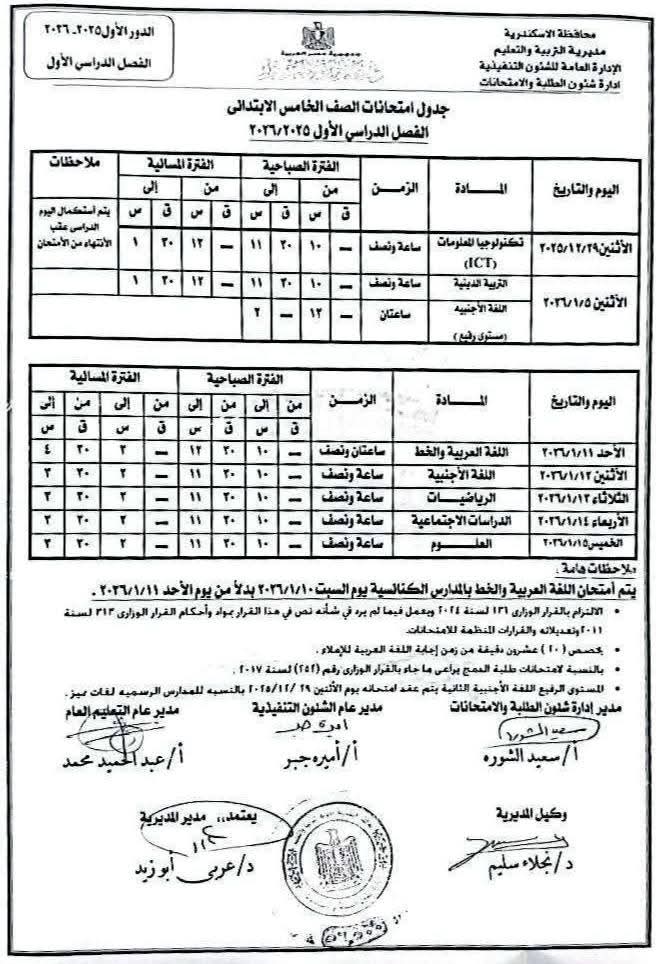 محافظة الاسكندرية
مديرية التربية والتعليم
الإدارة العامة للشئون التنفيذية
ادارة شئون الطلبة والامتحانات
الدور الأول ٢٠٢٥ـ ٢٠٢٦
الفصل الدراسي الأول
جدول امتحانات الصف الخامس الابتدائى
الفصل الدراسي الأول ٢٠٢٦/٢٠٢٥
اليوم والتاريخ المــــادة الزمن الفترة الصباحية الفترة المسائية ملاحظات
من إلى من إلى
ق س ق س ق س ق س
الأثنين ٢٠٢٥/١٢/٢٩ تكنولوجيا المعلومات (ICT) ساعة ونصف — ١٠ ٣٠ ١١ — ١٢ ٣٠ ١ يتم أستكمال اليوم الدراسى عقب الأنتهاء من الأمتحان
الأثنين ٢٠٢٦/١/٥ التربية الدينية ساعة ونصف — ١٠ ٣٠ ١١ — ١٢ ٣٠ ١
اللغة الأجنبيه (مستوى رفيع) ساعتان — ١٢ — ٢
اليوم والتاريخ المــــادة الزمن الفترة الصباحية الفترة المسائية
من إلى من إلى من إلى من إلى
ق س ق س ق س ق س
الأحد ٢٠٢٦/١/١١ اللغة العربية والخط ساعتان ونصف — ١٠ ٣٠ ١٢ — ٢ ٣٠ ٤
الأثنين ٢٠٢٦/١/١٢ اللغة الأجنبية ساعة ونصف — ١٠ ٣٠ ١١ — ٢ ٣٠ ٣
الثلاثاء ٢٠٢٦/١/١٣ الرياضيات ساعة ونصف — ١٠ ٣٠ ١١ — ٢ ٣٠ ٣
الأربعاء ٢٠٢٦/١/١٤ الدراسات الاجتماعية ساعة ونصف — ١٠ ٣٠ ١١ — ٢ ٣٠ ٣
الخميس ٢٠٢٦/١/١٥ العلوم ساعة ونصف — ١٠ ٣٠ ١١ — ٢ ٣٠ ٣
ملاحظات هامة :
يتم أمتحان اللغة العربية والخط بالمدارس الكنائسية يوم السبت ٢٠٢٦/١/١٠ بدلاً من يوم الأحد ٢٠٢٦/١/١١ .
• الالتزام بالقرار الوزارى ١٣٦ لسنة ٢٠٢٤ ويعمل فيما لم يرد في شأنه نص في هذا القرار بمواد وأحكام القرار الوزارى ٣١٣ لسنة
٢٠١١ وتعديلاته والقرارات المنظمة للامتحانات.
• يخصص (٢٠) عشرون دقيقة من زمن إجابة اللغة العربية للإملاء .
• بالنسبة لامتحانات طلبة الدمج يراعى ما جاء بالقرار الوزارى رقم (٢٥٢) لسنة ٢٠١٧ .
• المستوى الرفيع اللغة الأجنبية الثانية يتم عقد امتحانه يوم الأثنين ٢٩ /٢٠٢٥/١٢ بالنسبه للمدارس الرسميه لغات مميز .
مدير إدارة شئون الطلبة والامتحانات مدير عام الشئون التنفيذية مدير عام التعليم العام
أ/ سعيد الشوره أ/ أميره جبر أ/ عبد الحميد محمد
وكيل المديرية يعتمد،، مدير المديرية
د/ نجلاء سليم د/ عربى أبو زيد